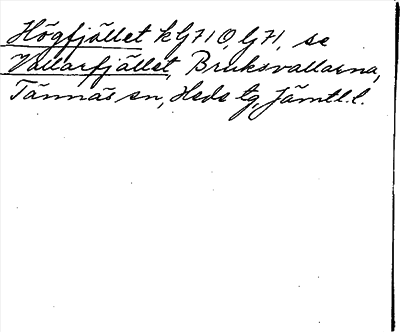 Högfjället k G71 Ö, G71, se
Vallarfjället, Bruksvallarna,
Tännäs sn, Heds tg, Jämtl. l.